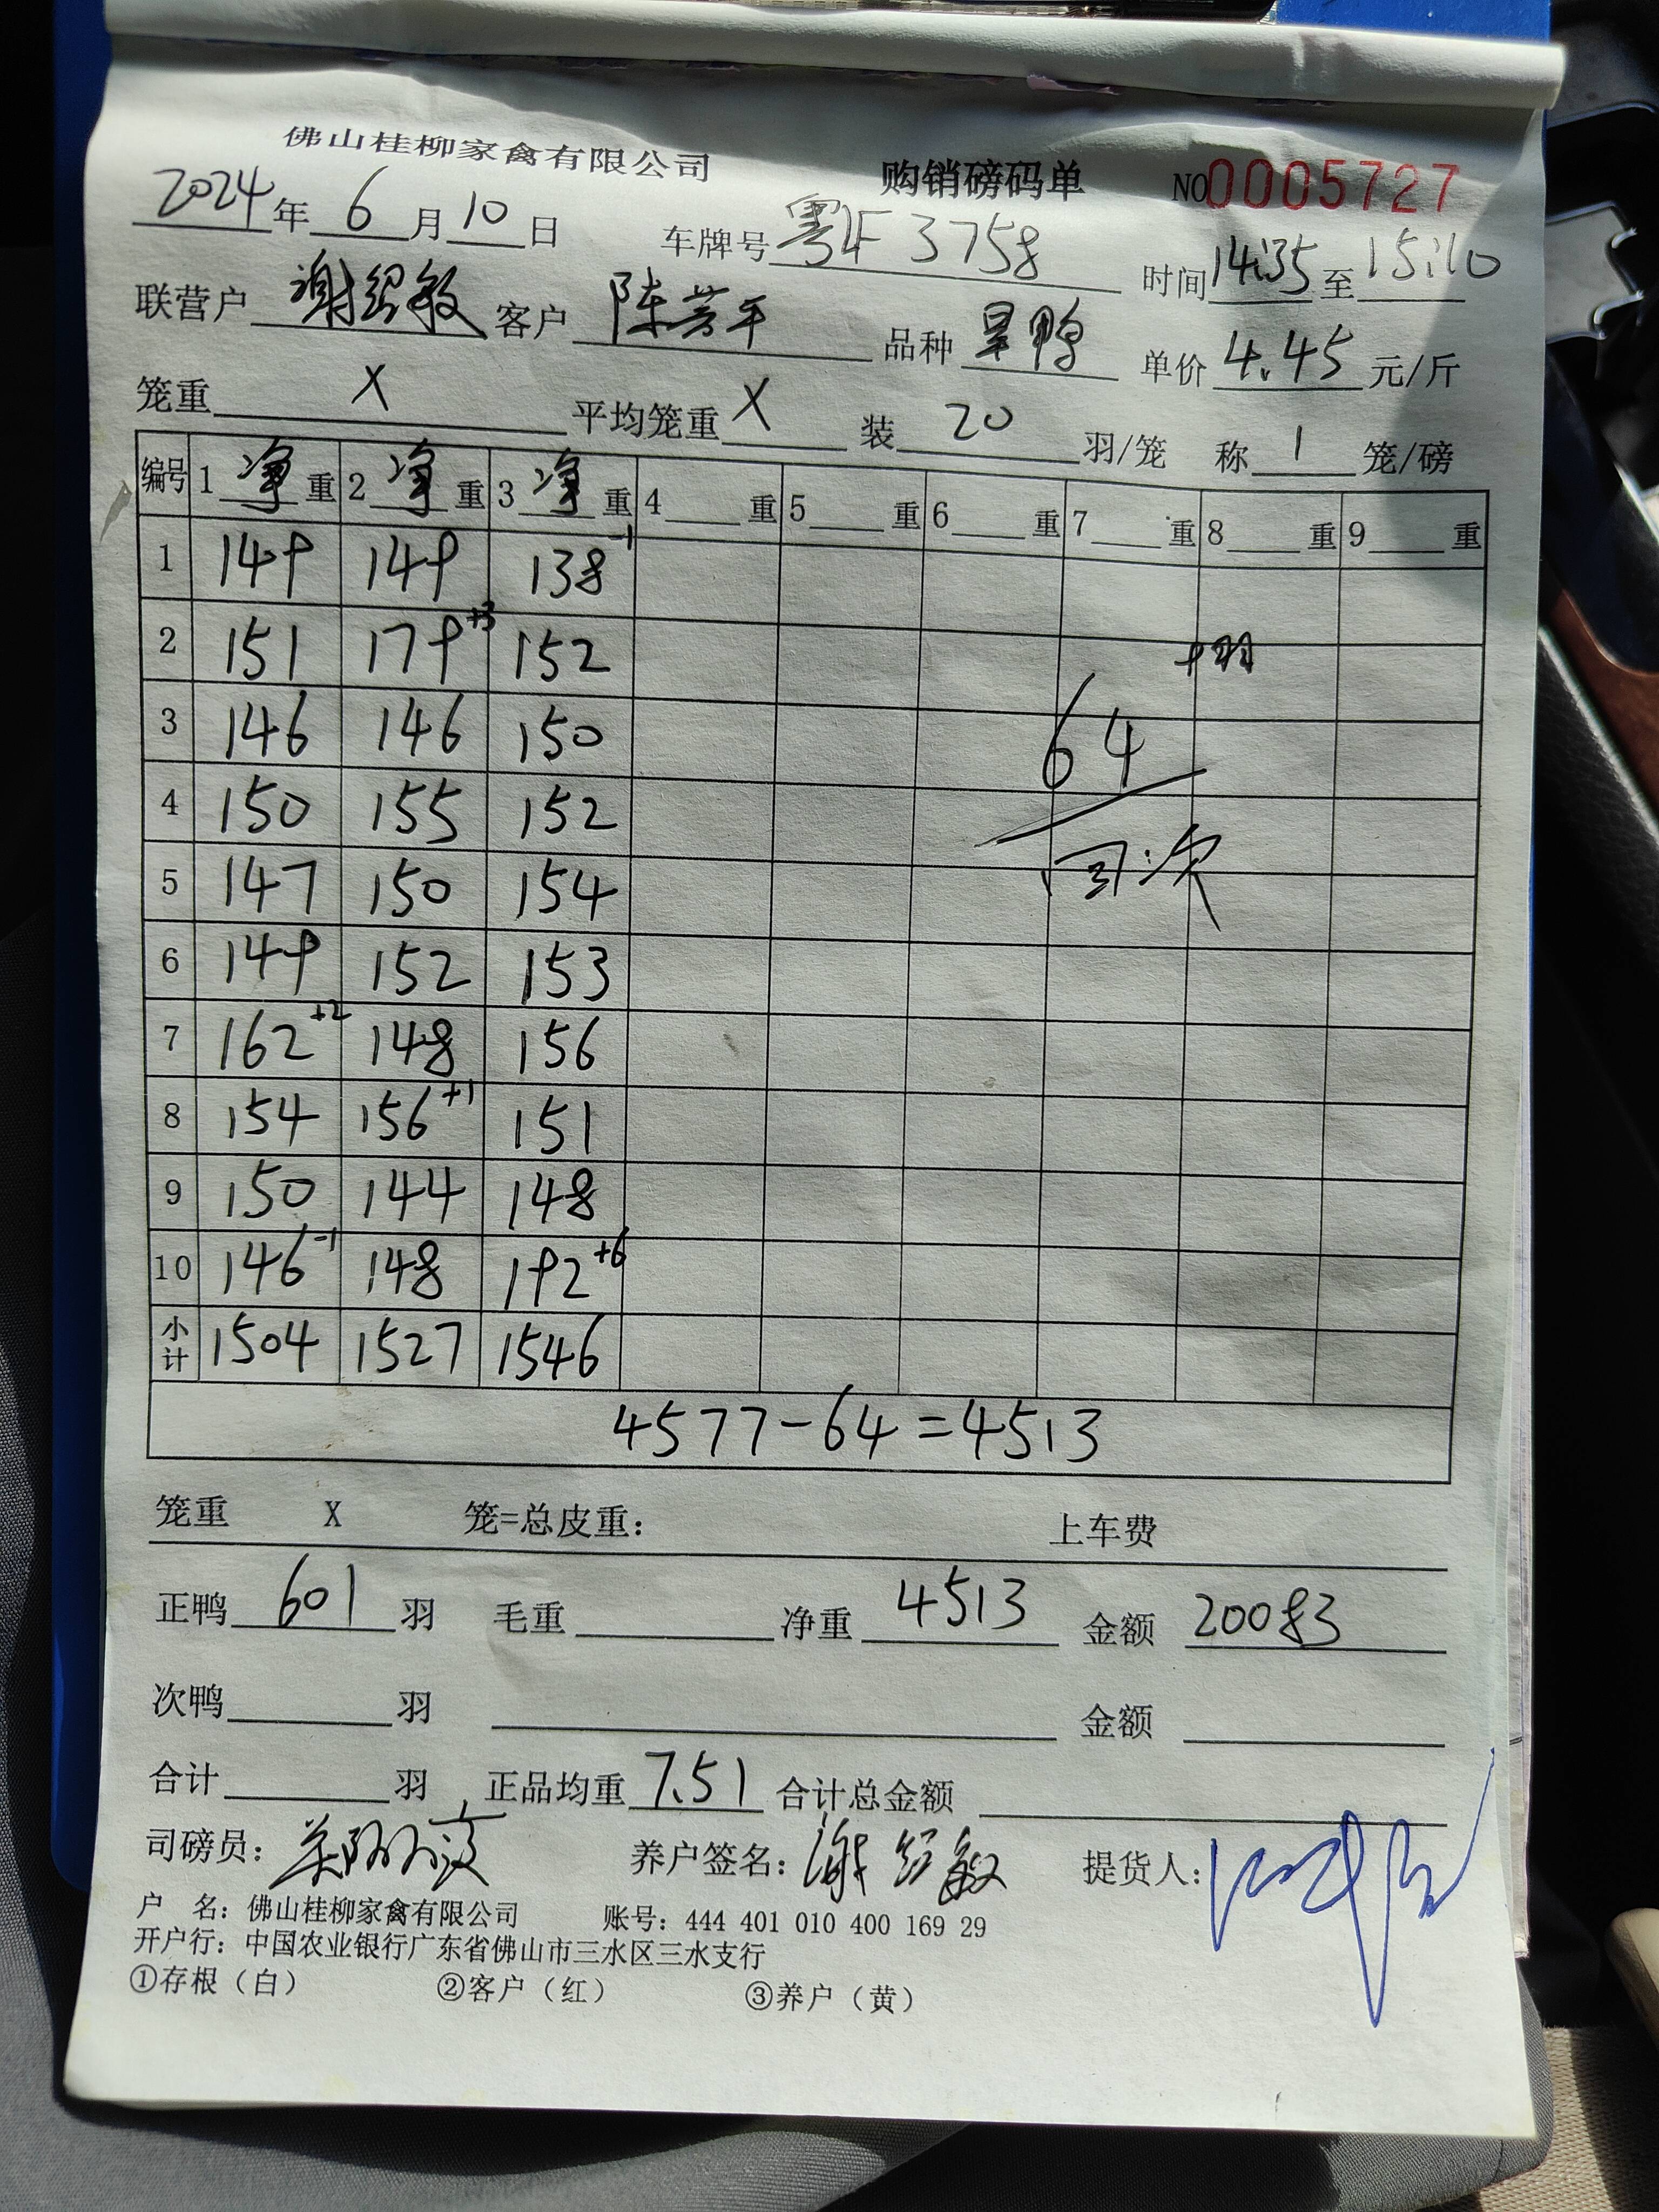 佛山桂柳家禽有限公司 购销磅码单 NO0005727
2024年6月10日 车牌号粤F 3758 时间14:35至15:10
联营户 谢绍敏 客户 陈芳平 品种 旱鸭 单价 4.45 元/斤
笼重 X 平均笼重 X 装 20 羽/笼 称 1 笼/磅
编号 1 净 重 2 净 重 3 净 重 4 重 5 重 6 重 7 重 8 重 9 重
1 149 149 138-1
2 151 179+3 152
3 146 146 150
64
4 150 155 152
回次
5 147 150 154
6 149 152 153
7 162+2 148 156
8 154 156+1 151
9 150 144 148
10 146-1 148 192+6
小计 1504 1527 1546
4577-64=4513
笼重 X 笼=总皮重: 上车费
正鸭 601 羽 毛重 净重 4513 金额 20083
次鸭 羽 金额
合计 羽 正品均重 7.51 合计总金额
司磅员: 养户签名: 谢绍敏 提货人:
户 名: 佛山桂柳家禽有限公司 账号: 444 401 010 400 169 29
开户行: 中国农业银行广东省佛山市三水区三水支行
①存根（白） ②客户（红） ③养户（黄）